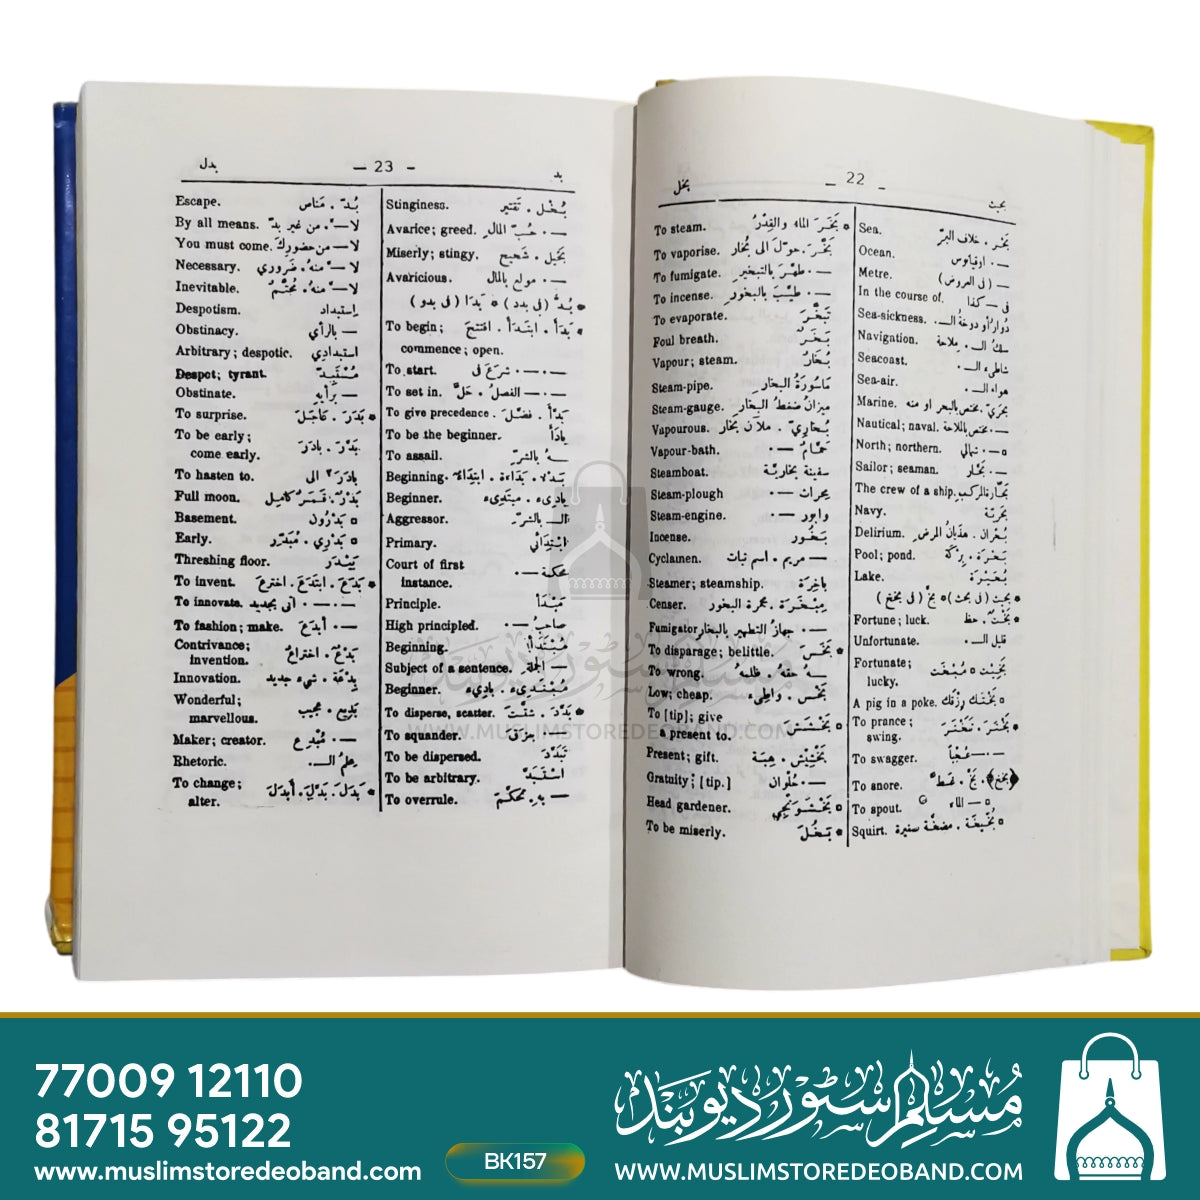 بحث
— 22 —
بخل
Sea. بَحْر . خلاف البَرّ
Ocean. — . اوقيانوس
Metre. — ( في العروض )
In the course of. في — كذا
Sea-sickness. دُوار أو دوخةُ الـ .
Navigation. سلكُ الـ . مِلاحة
Seacoast. شاطىء الـ .
Sea-air. هواء الـ .
Marine. بحريّ . مختص بالبحر او منه
Nautical; naval. — . مختص بالملاحة
North; northern. — . شمالي
Sailor; seaman. — . بَحَّار
The crew of a ship. بَحَّارة المركب
Navy. بَحْرِيَّة
Delirium. بُحْران . هذيان المرض
Pool; pond. بَحْرَة . بِرْكَة
Lake. بُحَيْرَة
بحث ( في بحث ) بخّ ( في بخخ )
Fortune; luck. بَخْت . حظ
Unfortunate. قليل الـ .
Fortunate;
lucky. بَخِيْت . مُبْخَت
A pig in a poke. بَخْتَك رِزْقَك
To prance;
swing. بَخْتَرَ . تَبَخْتَرَ
To swagger. — . — عُجْباً
To snore. (بخخ) . بَخّ . غطّ
To spout. — الماء
Squirt. بُخَّيْخَة . مضخَّة صغيرة
To steam. بَخَرَ الماء والقِدْرُ
To vaporise. بَخَّرَ . حوّلَ الى بُخار
To fumigate. — . طهَّرَ بالتبخير
To incense. — . طيَّبَ بالبخور
To evaporate. تَبَخَّرَ
Foul breath. بَخَر
Vapour; steam. بُخَارٌ
Steam-pipe. مَاسُورَةُ البخار
Steam-gauge. ميزانُ ضغطُ البخار
Vapourous. بُخَارِيّ . ملآن بخار
Vapour-bath. حَمَّامٌ — .
Steamboat. سفينة بخاريَّة
Steam-plough محراث — .
Steam-engine. وابور — .
Incense. بَخُور
Cyclamen. — مريم . اسم نبات
Steamer; steamship. بَاخِرَة
Censer. مِبْخَرَة . مجمرة البخور
Fumigator — . جهازُ التطهير بالبخار
To disparage; belittle. بَخَسَ
To wrong. — ـه حقهُ . ظلمهُ
Low; cheap. بَخْس . واطىء
To [tip]; give
a present to. بَخْشَشَ
Present; gift. بَخْشِيْش . هِبَة
Gratuity; [tip.] — . حُلْوان
Head gardener. بَخْشَوَنْجِي
To be miserly. بَخُلَ
بد
— 23 —
بدل
Stinginess. بُخْل . تَقْتِير
Avarice; greed. — . حُبّ المال
Miserly; stingy. بَخِيل . شَحِيح
Avaricious. — . مولع بالمال
بُدّ ( في بدد ) بَدَا ( في بدو )
To begin; بَدَأَ . ابْتَدَأَ . افتتحَ
commence; open.
To start. — . — . شرعَ في
To set in. — . — الفصلُ . حَلَّ
To give precedence. بَدَّأَ . فضَّلَ
To be the beginner. بادَأَ
To assail. — ـهُ بالشرّ
Beginning. بَدْء . بَدَاءة . ابتداءٌ
Beginner. بادِىء . مبتدِىء
Aggressor. الـ بالشرّ
Primary. ابْتِدَائِي
Court of first
instance. محكمة — .
Principle. مَبْدَأ
High principled. صاحبُ — .
Beginning. مُبْتَدَأٌ
Subject of a sentence. — الجملة
Beginner. مُبْتَدِىء . بادِىء
To disperse, scatter. بَدَّدَ . شتَّتَ
To squander. — . بعزقَ
To be dispersed. تَبَدَّدَ
To be arbitrary. اسْتَبَدَّ
To overrule. — به . تحكَّمَ
Escape. بُدّ . مَناص
By all means. لا — . من غير بدّ
You must come. لا — من حضورِكَ
Necessary. لا — منهُ . ضَروري
Inevitable. لا — منهُ . مُحَتَّمٌ
Despotism. اِستِبداد
Obstinacy. — بالرأي
Arbitrary; despotic. استبدادي
Despot; tyrant. مُسْتَبِدّ
Obstinate. — برأيه
To surprise. بَدَرَ . عَاجَلَ
To be early;
come early. بَدَّرَ . بادَرَ
To hasten to. بادَرَ الى
Full moon. بَدْرٌ . قَمَرٌ كامِل
Basement. بَدْرُون
Early. بَدْرِي . مُبَدِّر
Threshing floor. بَيْدَر
To invent. بَدَعَ . ابتَدَعَ . اخترعَ
To innovate. — . — . أتى بجديد
To fashion; make. — . أَبدَعَ
Contrivance;
invention. بَدْعٌ . اختراعٌ
Innovation. بِدْعَة . شيء جديد
Wonderful;
marvellous. بَدِيع . عجيب
Maker; creator. — . مُبْدِع
Rhetoric. علمُ الـ .
To change;
alter. بَدَلَ . بَدَّلَ . أَبدَلَ
WWW.MUSLIMSTOREDEOBAND.COM
77009 12110
81715 95122
www.muslimstoredeoband.com
BK157
مسلم سٹور دیوبند
WWW.MUSLIMSTOREDEOBAND.COM